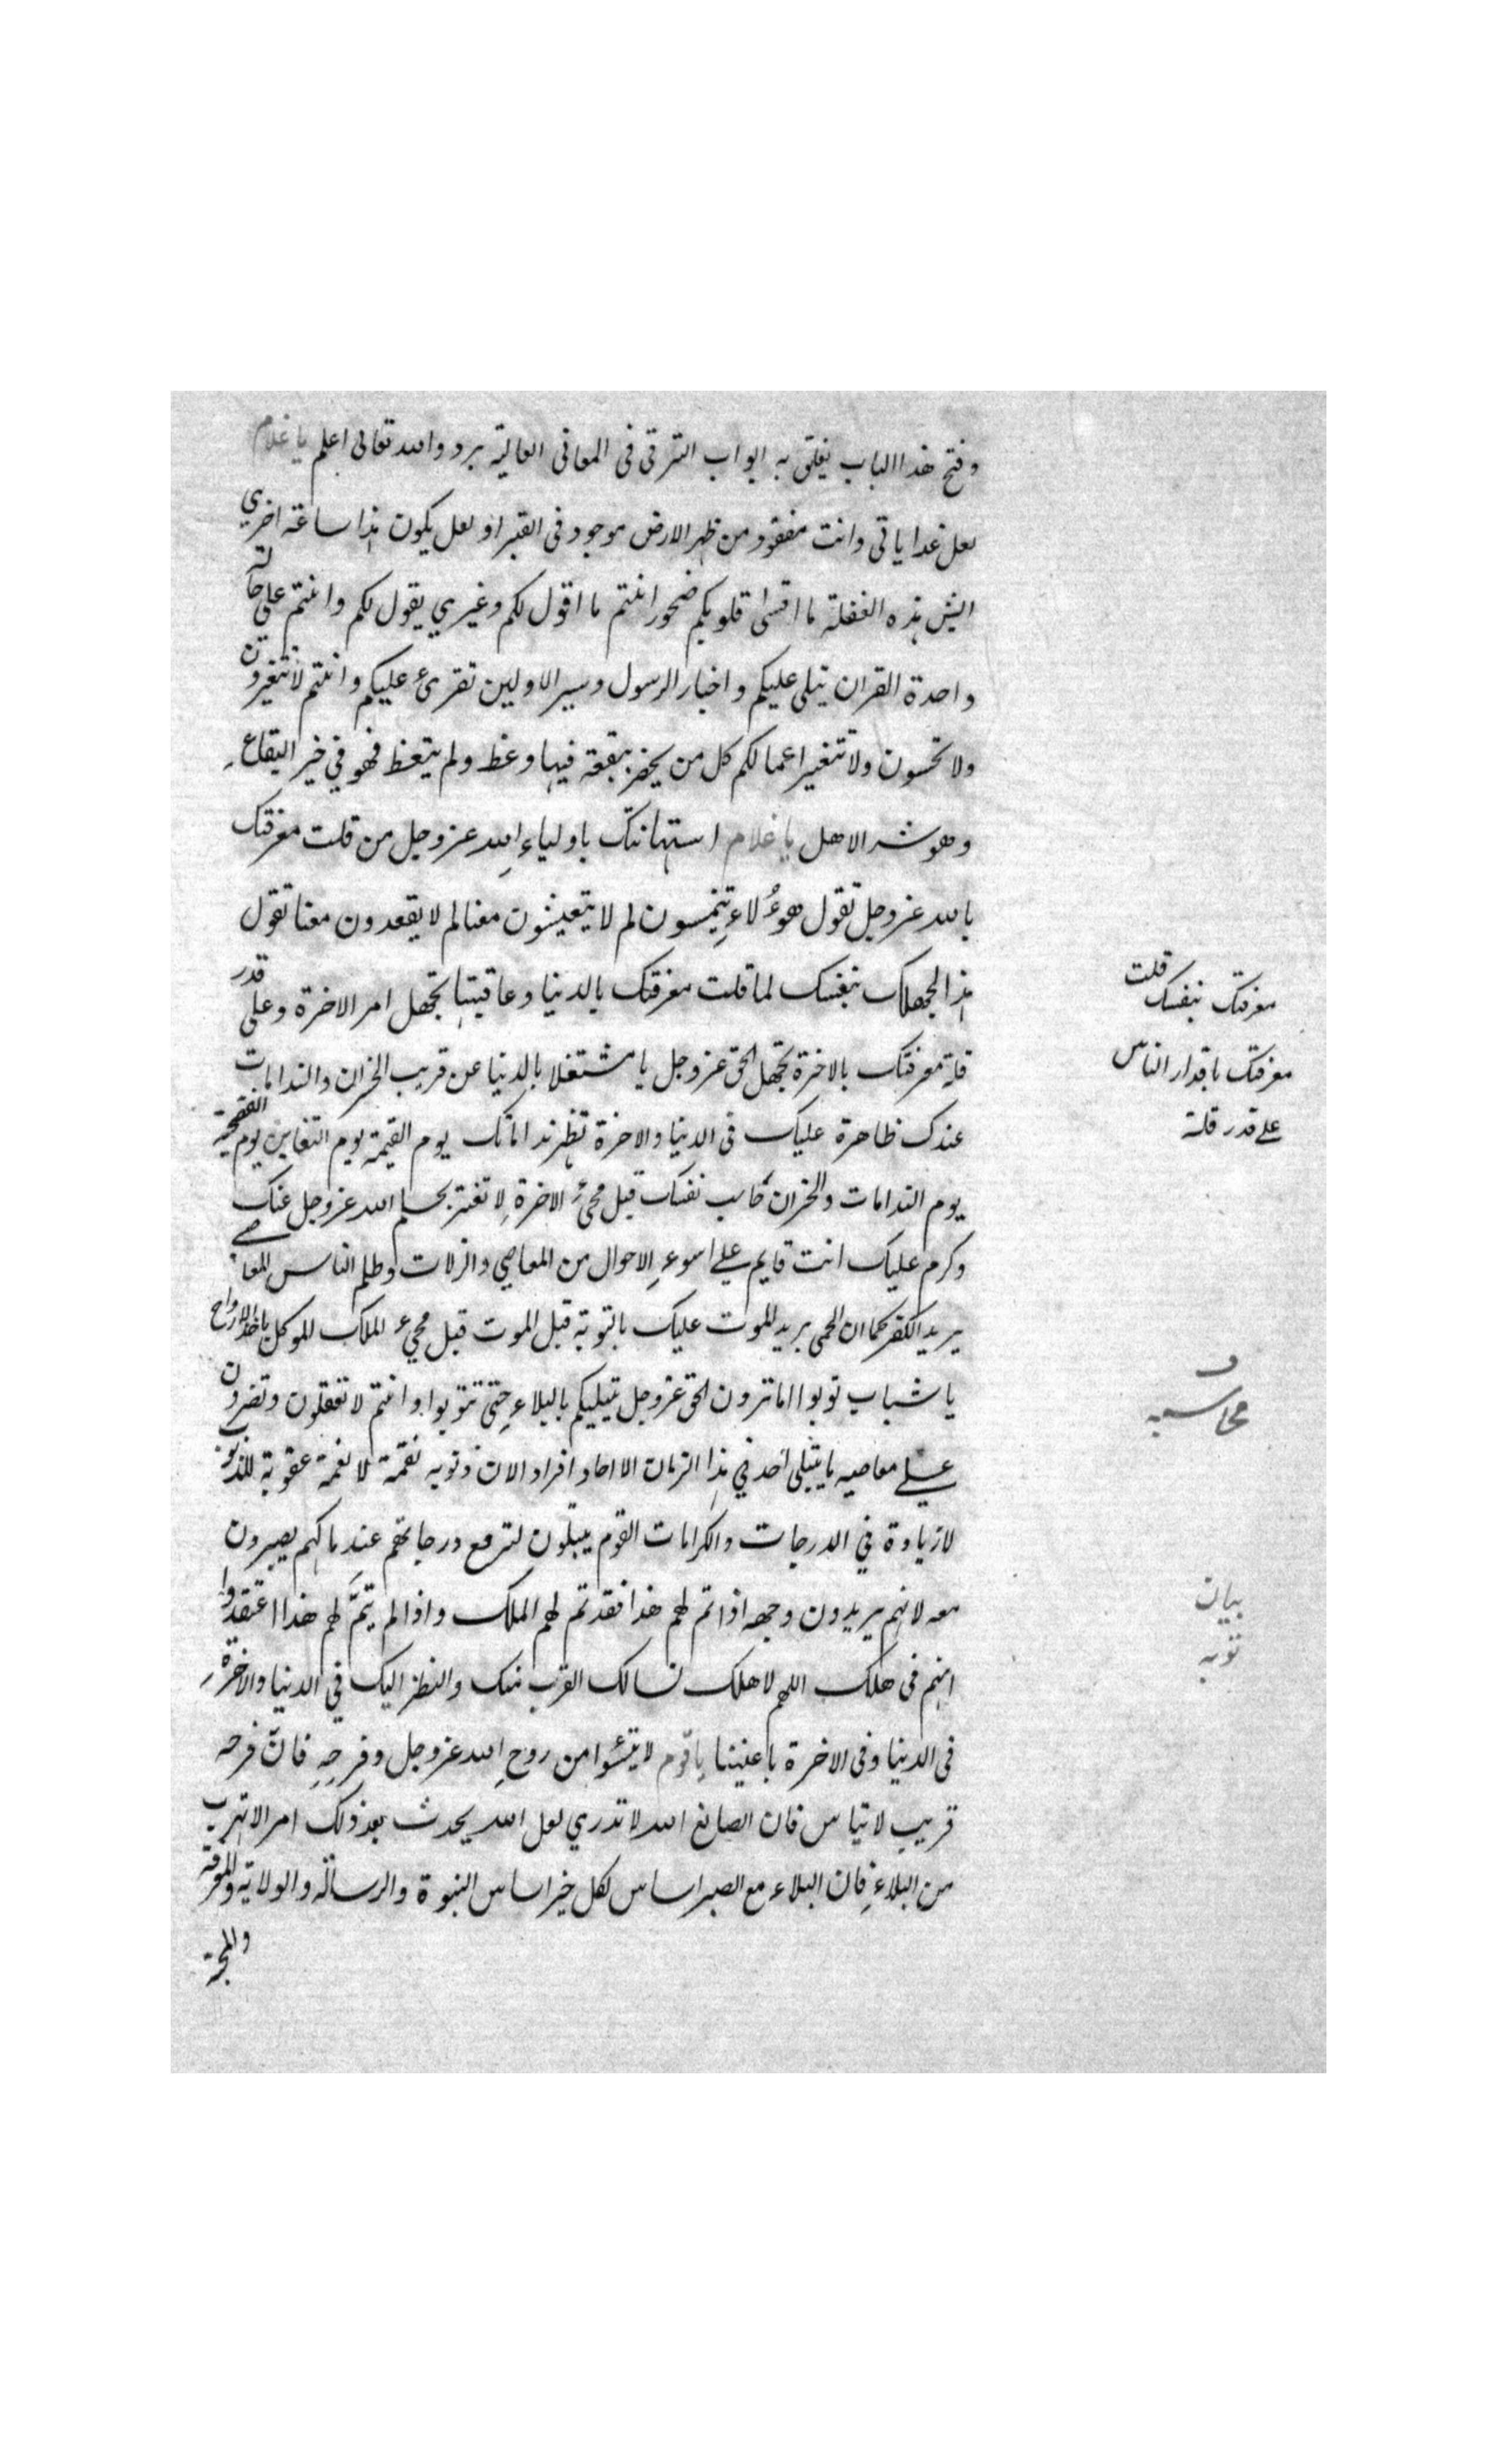 وفتح هذا الباب يغلق به ابواب الترقى فى المعانى العالية برد والله تعالى اعلم يا غلام
لعل غدا ياتى وانت مفقود من ظهر الارض موجود فى القبر او لعل يكون هذا ساعة اخرى
ايش هذه الغفلة ما اقسى قلوبكم صخور انتم ما اقول لكم وغيري يقول لكم وانتم على حالة
واحدة القران يتلى عليكم واخبار الرسول وسير الاولين تقرئ عليكم وانتم لا تتغيرون
ولا تحسون ولا تتغير اعمالكم كل من يحضر ببقعة فيها وعظ ولم يتعظ فهو في خير البقاع
وهو شر الاهل يا غلام استهانتك باولياء الله عز وجل من قلت معرفتك
بالله عز وجل تقول هوءلاء يتنمسون لم لا يتعيشون معنا لم لا يقعدون معنا تقول
هذا لجهلك بنفسك لما قلت معرفتك بالدنيا وعاقبتها تجهل امر الاخرة وعلى قدر
قلة معرفتك بالاخرة تجهل الحق عز وجل يا مشتغلا بالدنيا عن قريب الخسران والندامات
عندك ظاهرة عليك فى الدنيا والاخرة تظهر نداماتك يوم القيمة يوم التغابن يوم الفضيحة
يوم الندامات والخسران حاسب نفسك قبل مجئ الاخرة لا تغتر بحلم الله عز وجل عنك
وكرم عليك انت قايم علي اسوء الاحوال من المعاصي والزلات وظلم الناس المعاصي
بريد الكفر كما ان الحمى بريد الموت عليك بالتوبة قبل الموت قبل مجيء الملك الموكل باخذ الارواح
يا شباب توبوا اما ترون الحق عز وجل يبتليكم بالبلاء حتى تتوبوا وانتم لا تعقلون وتصرون
علي معاصيه ما يبتلى احد في هذا الزمان الا احاد افراد الان ذنوبه نقمة لا نعمة عقوبة للذنوب
لا زيادة في الدرجات والكرامات القوم يبتلون لترفع درجاتهم عند مالكهم يصبرون
معه لانهم يريدون وجهه اذا تم لهم هذا فقد تم لهم الملك واذا لم يتم لهم هذا اعتقدوا
انهم فى هلك اللهم لا هلك نسالك القرب منك والنظر اليك في الدنيا والاخرة
فى الدنيا وفى الاخرة باعيننا يا قوم لا تيئسوا من روح الله عز وجل وفرجه فان فرجه
قريب لا تياس فان الصانع الله لا تدري لعل الله يحدث بعد ذلك امرا لا تهرب
من البلاء فان البلاء مع الصبر اساس لكل خير اساس النبوة والرسالة والولاية والمعرفة
والمحبة
قلت
معرفتك بنفسك
معرفتك باقدار الناس
علي قدر قلة
محاسبه
بيان
توبه